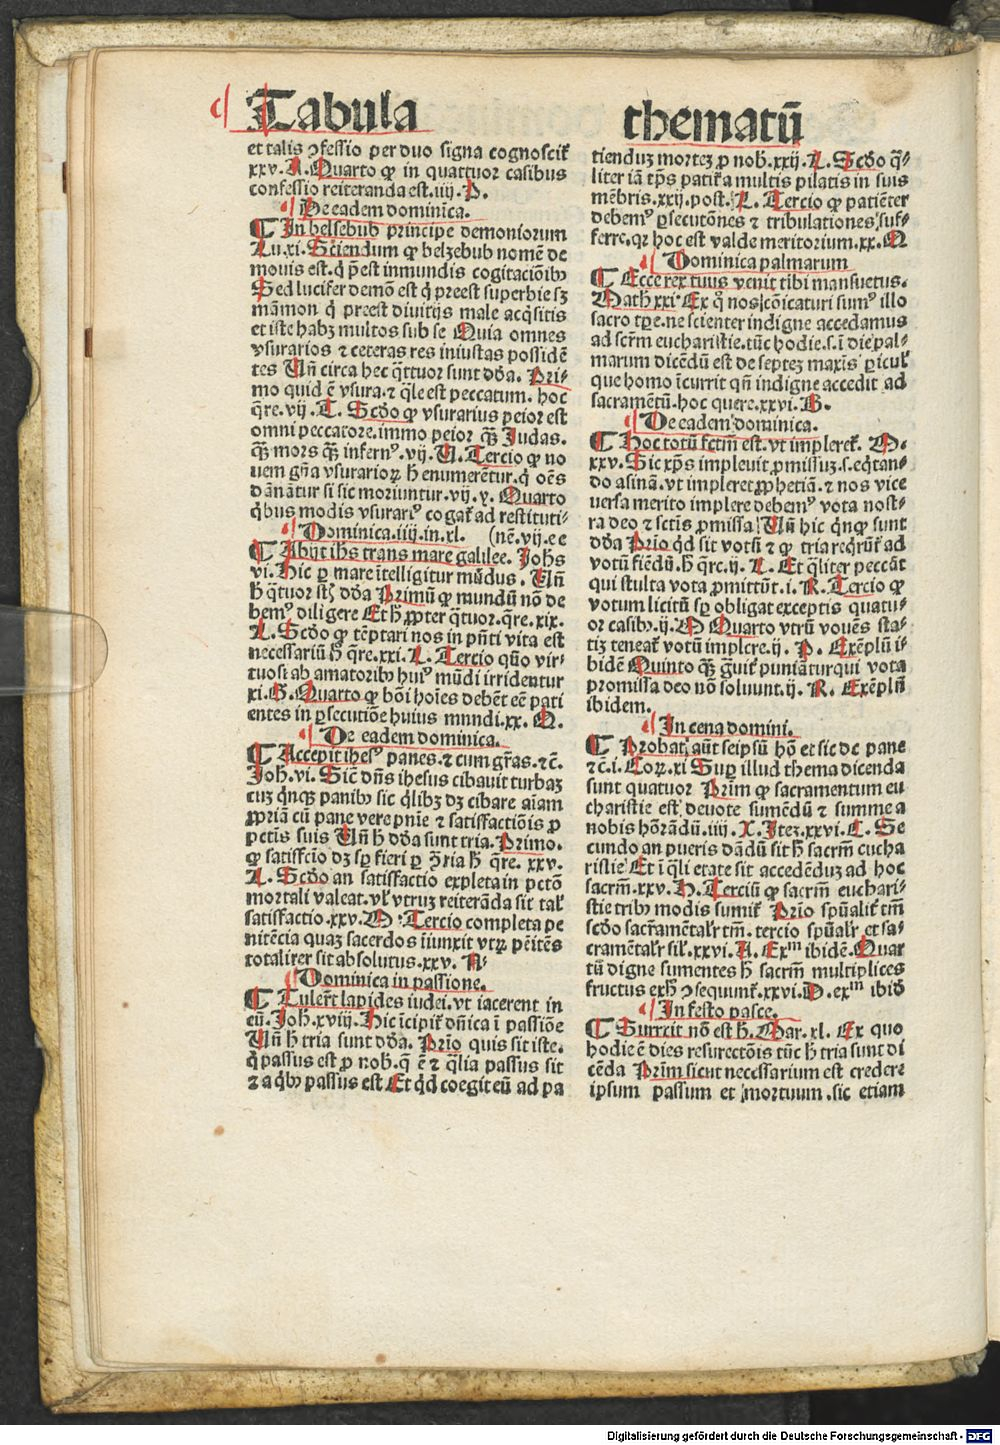 Tabula thematū
et talis ꝯfessio per duo signa cognoscit᷑
xxv. A. Quarto ꝙ in quattuor casibus
confessio reiteranda est. iiij. P.
De eadem dominica.
¶ In belsebub principe demoniorum
Lu. xi. Sciendum ꝙ belzebub nomē de
monis est. q̇ p̄est inmundis cogitaciōibꝰ
Sed lucifer demō est q̇ preest superbie sꝫ
māmon q̇ preest diuitijs male acq̇sitis
et iste habꝫ multos sub se Quia omnes
vsurarios ⁊ ceteras res iniustas possidē
tes Uñ circa hec q̄ttuor sunt dd̄a. Pri-
mo quid ē vsura. ⁊ q̄le est peccatum. hoc
q̄re. vij. T. Scd̄o ꝙ vsurarius peior est
omni peccatore. immo peior qȝ̄ Judas.
qȝ̄ mors qȝ̄ infernꝰ. vij. U. Tercio ꝙ no
uem gn̄a vsurarioꝝ h̄ enumerētur. q̇ oēs
dānātur si sic moriuntur. vij. y. Quarto
q̇bus modis vsurariꝰ cogat᷑ ad restituti-
(nē. vij. ee
Dominica. iiij. in. xl.
¶ Abijt ih̄s trans mare galilee. Joh̄s
vi. Hic ꝑ mare ītelligitur mūdus. Uñ
h̄ q̄tuor st̄ dd̄a Primū ꝙ mundū nō de
bemꝰ diligere Et h̄ ꝓpter q̄tuor. q̄re. xix.
L. Scd̄o ꝙ tēptari nos in pñti vita est
necessariū h̄ q̄re. xxi. L. Tercio quō vir-
tuosi ab amatoribꝰ huiꝰ mūdi irridentur
xi. G. Quarto ꝙ bōi hoīes debēt eē pati
entes in ꝑsecutiōe huius mnndi. xx. N.
De eadem dominica.
¶ Accepit ihesꝰ panes. ⁊ cum gr̄as. ⁊ c̄.
Joh. vi. Sic̄ dn̄s ihesus cibauit turbaꝫ
cuꝫ q̇nqꝫ panibꝰ sic q̇libꝫ dꝫ cibare aīam
ꝓpriā cū pane vere pnīe ⁊ satisfactiōis ꝓ
pctīs suis Uñ h̄ dd̄a sunt tria. Primo.
ꝙ satisfcīo dꝫ sꝑ fieri ꝑ ꝯ̄ria h̄ q̄re. xxv.
L. Scd̄o an satisfactio expleta in pctō
mortali valeat. vl᷑ vtruꝫ reiterāda sit tal᷑
satisfactio. xxv. M. Tercio completa pe
nitēcia quaꝫ sacerdos īiunxit vtꝝ pēitēs
totalirer sit absolutus. xxv. N.
Dominica in passione.
¶ Tuler̄t lapides iudei. vt iacerent in
eū. Joh. xviij. Hic īcipit᷑ dn̄ica ī passiōe
Uñ h̄ tria sunt dd̄a. Prīo quis sit iste.
q̇ passus est ꝓ nob̄. q̇ ē ⁊ q̄lia passus sit
⁊ a q̇bꝰ passus est Et q̇d coegit eū ad pa
tienduꝫ morteꝫ ꝓ nob̄. xxij. L. Scd̄o q̄-
liter iā tp̄s patit᷑ a multis pilatis in suis
mēbris. xxij. post. L. Tercio ꝙ patiēter
debemꝰ ꝑsecutōnes ⁊ tribulationes suf-
ferre. qꝛ hoc est valde meritorium. xx. N
Dominica palmarum
¶ Ecce rex tuus venit tibi mansuetus.
Math̄ xxi. Ex q̊ nos cōicaturi sumꝰ illo
sacro tꝑe. ne scienter indigne accedamus
ad scr̄m eucharistie. tūc hodie. s. ī die pal-
marum dicēdū est de septeꝫ maxīs ꝑicul᷑
que homo īcurrit qñ indigne accedit ad
sacramētū. hoc quere. xxvi. B.
De eadem dominica.
¶ Hoc totū fctm̄ est. vt impleret᷑. M.
xxv. Sic xp̄s impleuit ꝓmissuꝫ. s. eq̇tan-
do asinā. vt impleret ꝓphetiā. ⁊ nos vice
uersa merito implere debemꝰ vota nost-
ra deo ⁊ sctīs ꝓmissa Uñ hic q̇nqꝫ sunt
dd̄a Prīo q̇d sit votū ⁊ ꝙ tria reqrūt᷑ ad
votū fiēdū. h̄ q̄re. ij. L. Et q̄liter peccāt
qui stulta vota ꝓmittūt. i. R. Tercio ꝙ
votum licitū sꝑ obligat exceptis quatu-
or casibꝰ. ij. M Quarto vtrū vouēs sta-
tiꝫ teneat᷑ votū implere. ij. P. Exēplū i-
bidē Quinto qȝ̄ g̈uit᷑ puniātur qui vota
promissa deo nō soluunt. ij. R. Exēplū
ibidem.
In cena domini.
¶ Probat᷑ aūt seipsū hō et sic de pane
⁊ c̄. i. Coꝝ. xi Suꝑ illud thema dicenda
sunt quatuor Prīm ꝙ sacramentum eu
charistie est deuote sumēdū ⁊ summe a
nobis hōrādū. iiij. X. Iteꝫ. xxvi. C. Se
cundo an pueris dādū sit h̄ sacrm̄ eucha
ristie Et ī q̄li etate sit accedēduꝫ ad hoc
sacrm̄. xxv. H. Terciū ꝙ sacrm̄ euchari-
stie tribꝰ modis sumit᷑ Prīo spūalit᷑ tm̄
scd̄o sacrāmētalr᷑ tm̄. tercio spūalr᷑ et sa-
cramētalr᷑ sil᷑. xxvi. A. Exᵐ ibidē. Quar
tū digne sumentes h̄ sacrm̄ multiplices
fructus exh̄ ꝯsequunt᷑. xxvi. D. exᵐ ibid̄
In festo pasce.
¶ Surrxit nō est h̄. Mar. xl. Ex quo
hodie ē dies resurectōis tūc h̄ tria sunt di
cēda Prīm sicut necessarium est credere
ipsum passum et mortuum. sic etiam
Digitalisierung gefördert durch die Deutsche Forschungsgemeinschaft - DFG